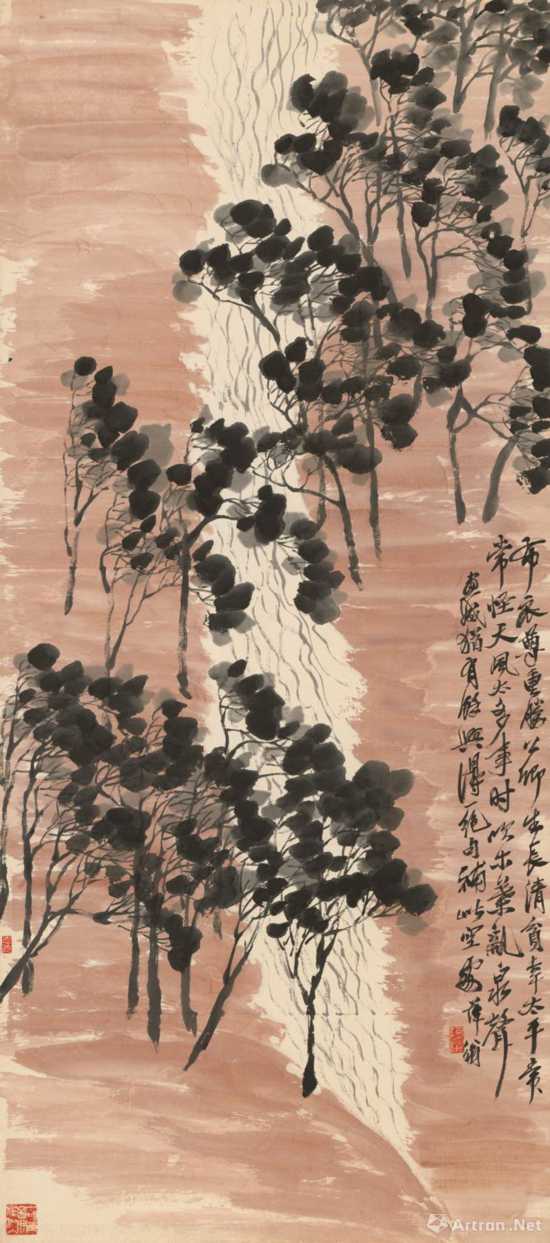 布衣尊重勝公卿生長清貧幸太平
常怪天風太多事時吹木葉亂泉聲
畫成猶有餘興得一絕句補此空處萍翁
Artron.Net